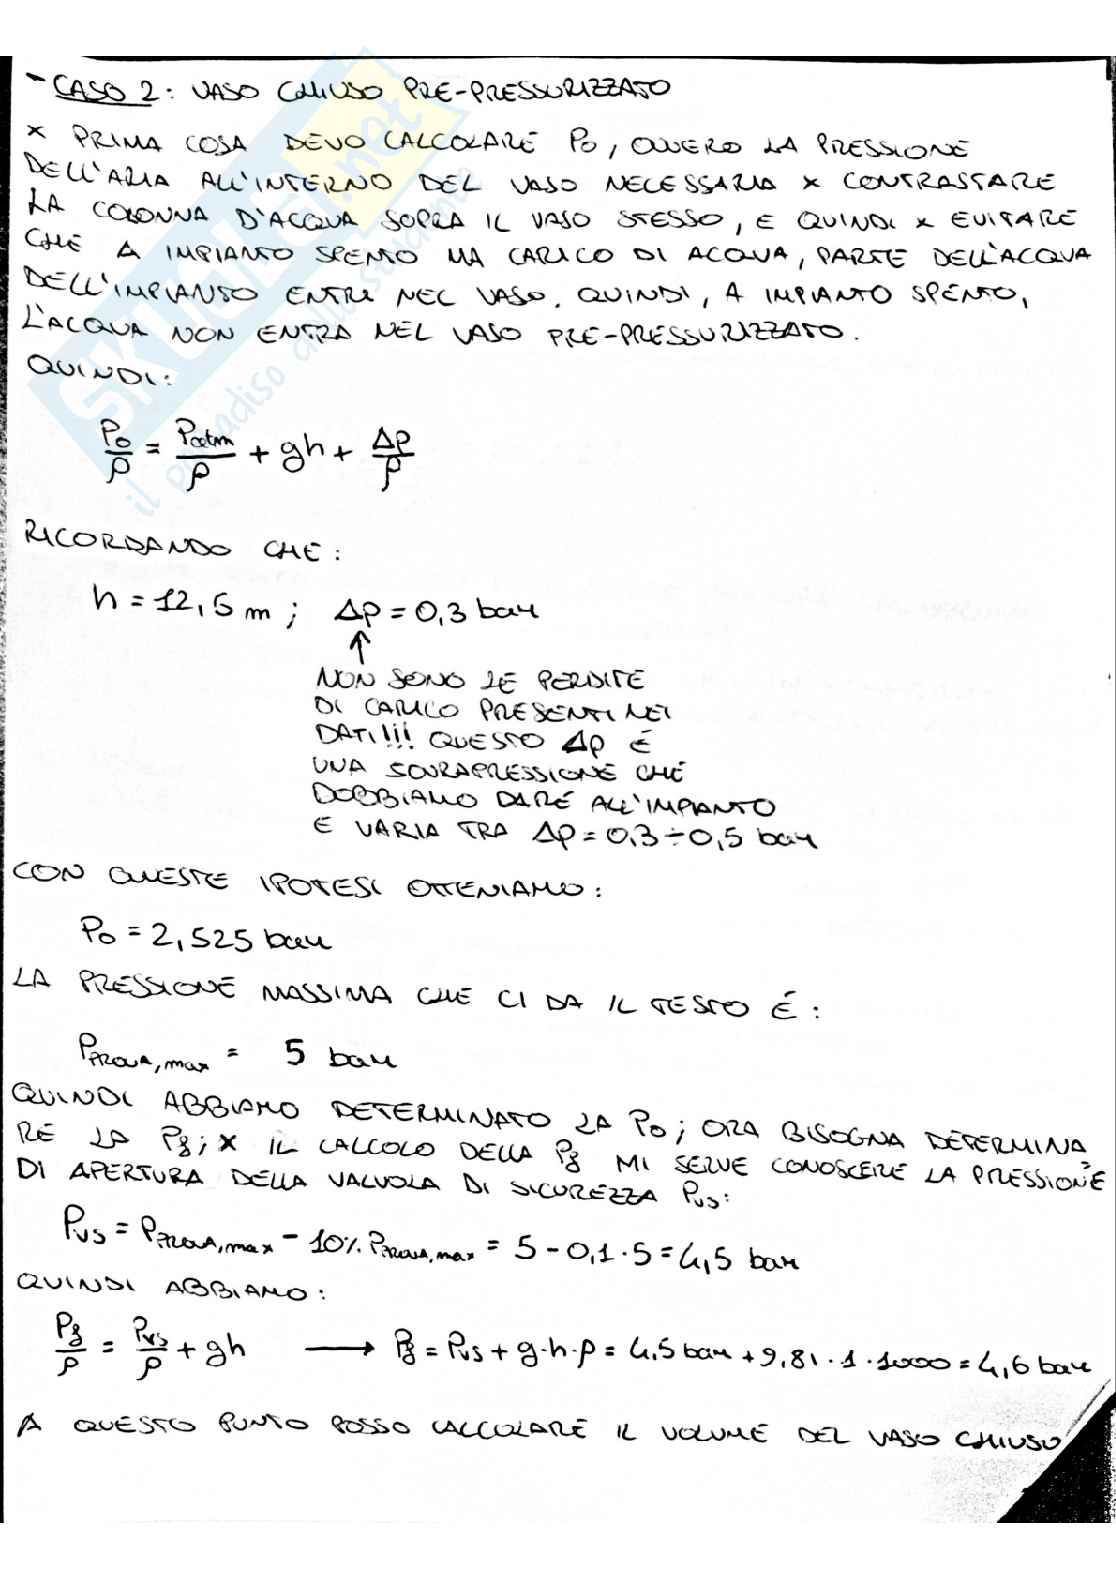 - CASO 2: VASO CHIUSO PRE-PRESSURIZZATO
x PRIMA COSA DEVO CALCOLARE P0, OVVERO LA PRESSIONE
DELL'ARIA ALL'INTERNO DEL VASO NECESSARIA x CONTRASTARE
LA COLONNA D'ACQUA SOPRA IL VASO STESSO, E QUINDI x EVITARE
CHE A IMPIANTO SPENTO MA CARICO DI ACQUA, PARTE DELL'ACQUA
DELL'IMPIANTO ENTRI NEL VASO. QUINDI, A IMPIANTO SPENTO,
L'ACQUA NON ENTRA NEL VASO PRE-PRESSURIZZATO.
QUINDI:
P0/ρ = Patm/ρ + gh + Δp/ρ
RICORDANDO CHE:
h = 12,5 m ; Δp = 0,3 bar
↑
NON SONO LE PERDITE
DI CARICO PRESENTI NEI
DATI!!! QUESTO Δp È
UNA SOVRAPRESSIONE CHE
DOBBIAMO DARE ALL'IMPIANTO
E VARIA TRA Δp = 0,3 ÷ 0,5 bar
CON QUESTE IPOTESI OTTENIAMO:
P0 = 2,525 bar
LA PRESSIONE MASSIMA CHE CI DA IL TESTO È:
PPROVA,max = 5 bar
QUINDI ABBIAMO DETERMINATO LA P0; ORA BISOGNA DETERMINA
RE LA Pf; x IL CALCOLO DELLA Pf MI SERVE CONOSCERE LA PRESSIONE
DI APERTURA DELLA VALVOLA DI SICUREZZA Pvs:
Pvs = PPROVA,max - 10% PPROVA,max = 5 - 0,1 · 5 = 4,5 bar
QUINDI ABBIAMO:
Pf/ρ = Pvs/ρ + gh → Pf = Pvs + g·h·ρ = 4,5 bar + 9,81 · 1 · 1000 = 4,6 bar
A QUESTO PUNTO POSSO CALCOLARE IL VOLUME DEL VASO CHIUSO
SKUOLA.net
il paradiso dello studente